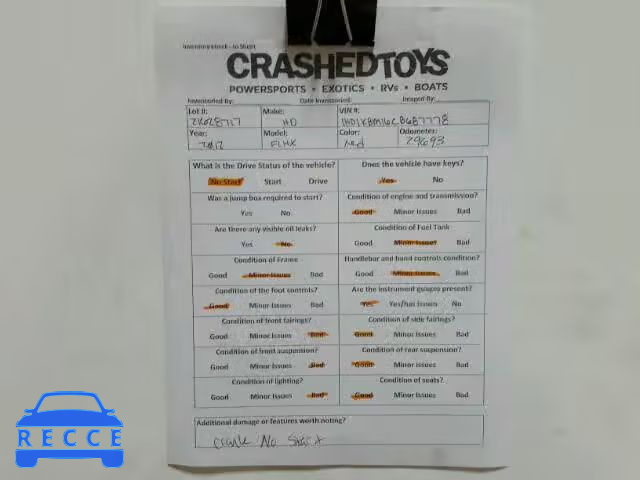 Inventory Check - In Sheet
CRASHEDTOYS
POWERSPORTS • EXOTICS • RVs • BOATS
Inventoried By: Date Inventoried: Imaged By:
Lot #: Make: VIN #:
HD
Year: Model: Color: Odometer:
2012 FLHX Red 29693
What is the Drive Status of the vehicle? Does the vehicle have keys?
No Start Start Drive Yes No
Was a jump box required to start? Condition of engine and transmission?
Yes No Good Minor Issues Bad
Are there any visible oil leaks? Condition of Fuel Tank
Yes No Good Minor Issues Bad
Condition of Frame Handlebar and hand controls condition?
Good Minor Issues Bad Good Minor Issues Bad
Condition of the foot controls? Are the instrument gauges present?
Good Minor Issues Bad Yes Yes/has issues No
Condition of front fairings? Condition of side fairings?
Good Minor Issues Bad Good Minor Issues Bad
Condition of front suspension? Condition of rear suspension?
Good Minor Issues Bad Good Minor Issues Bad
Condition of lighting? Condition of seats?
Good Minor Issues Bad Good Minor Issues Bad
Additional damage or features worth noting?
Crank No Start
RECCE